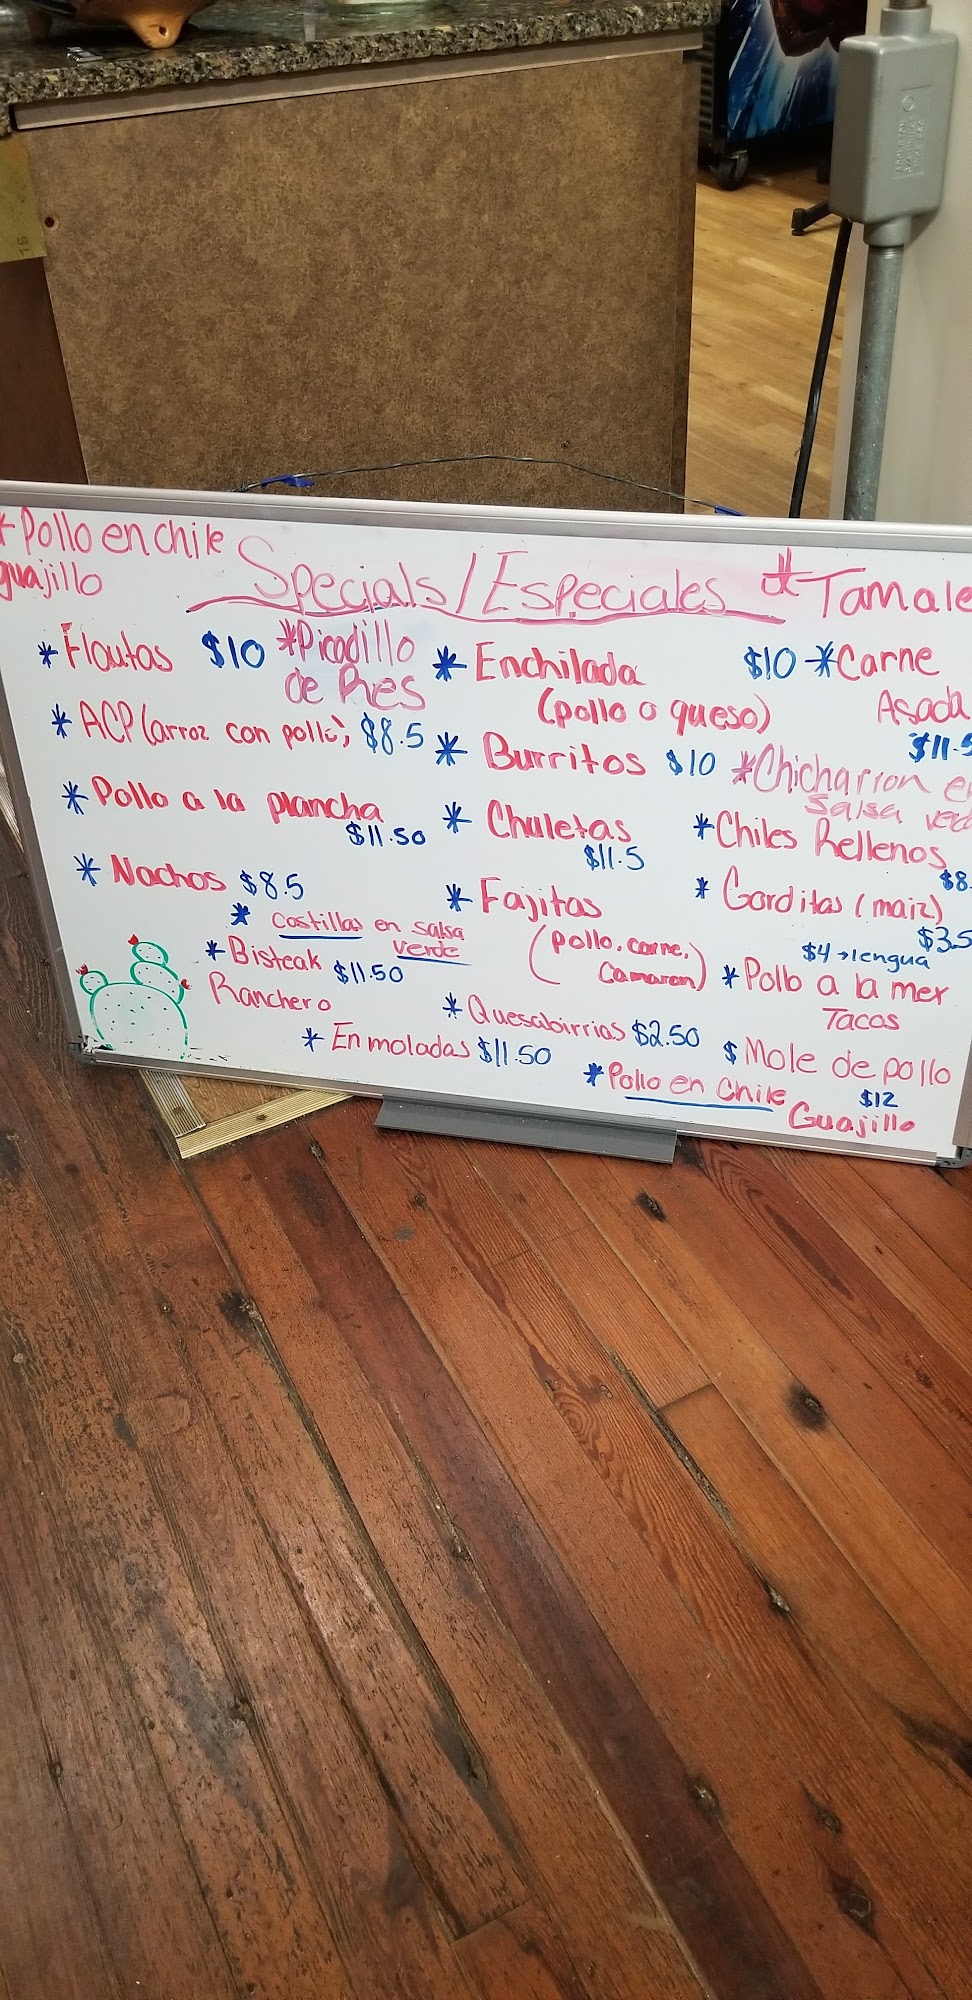 *Pollo en chile
guajillo
Specials/Especiales
#Tamale
*Flautas $10
*Picadillo
de Res
*Enchilada $10
(pollo o queso)
*Carne
Asada
$11.5
*ACP (arroz con pollo) $8.5
*Burritos $10
*Chicharron en
Salsa verde
*Pollo a la plancha
$11.50
*Chuletas
$11.5
*Chiles Rellenos
$8.
*Nachos $8.5
*Fajitas
(pollo, carne,
Camaron)
*Gorditas (maiz)
$3.5
$4→lengua
*Costillas en salsa
verde
*Bisteak $11.50
Ranchero
*Pollo a la mex
Tacos
*Quesabirrias $2.50
*Enmoladas $11.50
$Mole de pollo
$12
*Pollo en Chile
Guajillo